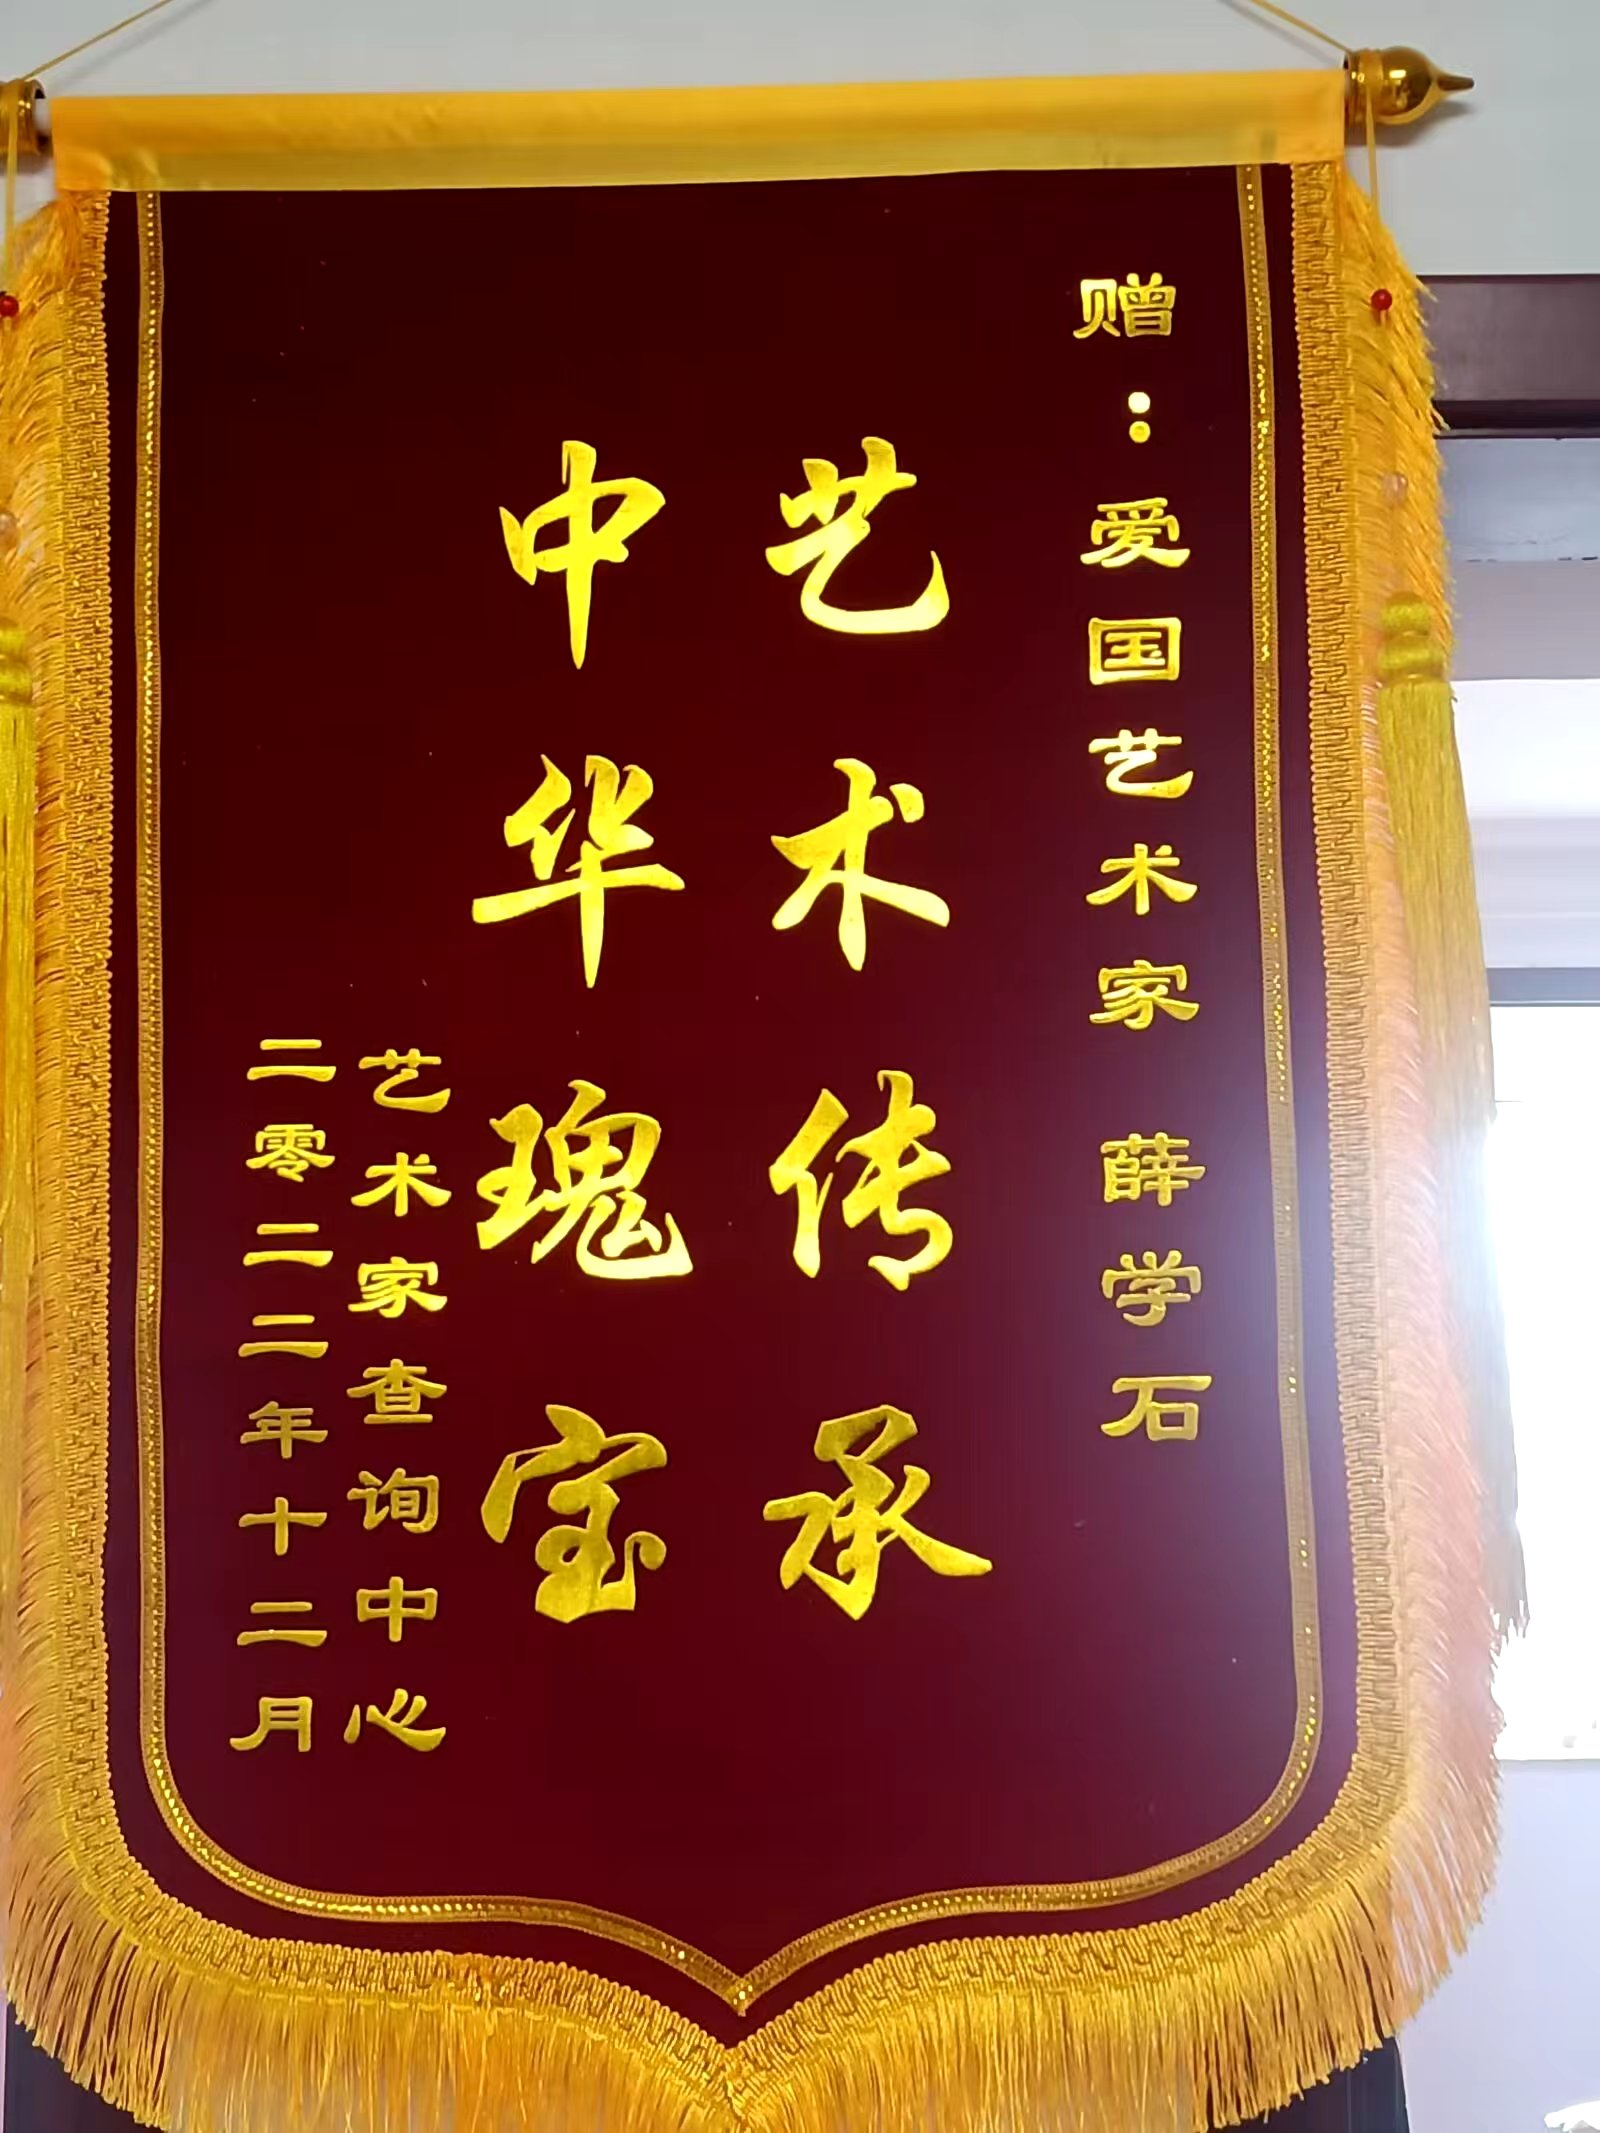 赠：爱国艺术家 薛学石
艺术传承
中华瑰宝
艺术家查询中心
二零二二年十二月